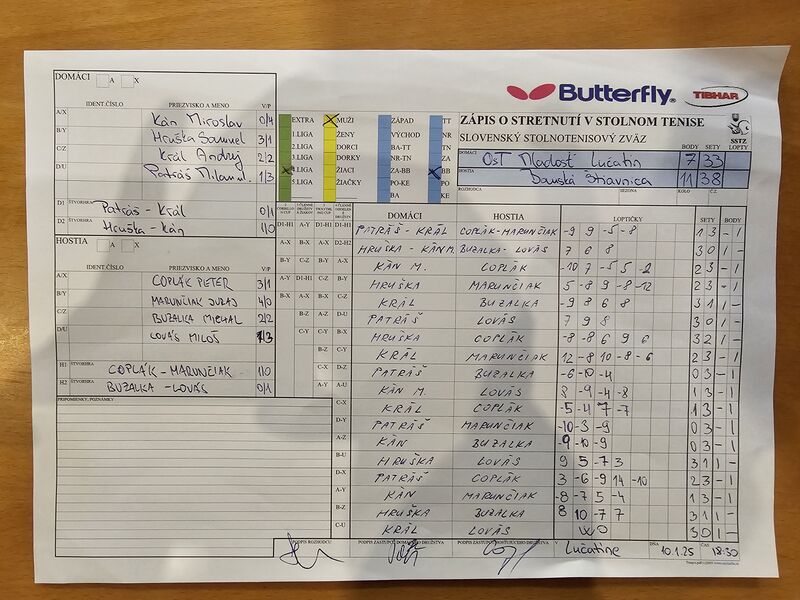 DOMÁCI A X
IDENT.ČÍSLO PRIEZVISKO A MENO V/P
A/X Kán Miroslav 0/4
B/Y Hruška Samuel 3/1
C/Z Král Andrej 2/2
D/U Patráš Milan ml. 1/3
D1 ŠTVORHRA Patráš - Král 0/1
D2 ŠTVORHRA Hruška - Kán 1/0
HOSTIA A X
IDENT.ČÍSLO PRIEZVISKO A MENO V/P
A/X COPLÁK PETER 3/1
B/Y MARUNČIAK JURAJ 4/0
C/Z BUZALKA MICHAL 2/2
D/U LOVÁS MILOŠ 1/3
H1 ŠTVORHRA COPLÁK - MARUNČIAK 1/0
H2 ŠTVORHRA BUZALKA - LOVÁS 0/1
PRIPOMIENKY, POZNÁMKY
Butterfly
TIBHAR
ZÁPIS O STRETNUTÍ V STOLNOM TENISE
SLOVENSKÝ STOLNOTENISOVÝ ZVÄZ
SSTZ
EXTRA MUŽI ZÁPAD TT
1.LIGA ŽENY VÝCHOD NR
2.LIGA DORCI BA-TT TN
3.LIGA DORKY NR-TN ZA
4.LIGA ŽIACI ZA-BB BB
5.LIGA ŽIAČKY PO-KE PO
BA KE
BODY SETY LOPTY
DOMÁCI OST Mladosť Lučatín 7 33
HOSTIA Banská Štiavnica 11 38
ROZHODCA SEZÓNA KOLO Č.Z.
DOMÁCI HOSTIA LOPTIČKY SETY BODY
PATRÁŠ - KRÁL COPLÁK-MARUNČIAK -9 9 -5 -8 1 3 - 1
HRUŠKA - KÁN M. BUZALKA - LOVÁS 7 6 8 3 0 1 -
KÁN M. COPLÁK -10 7 -5 5 -2 2 3 - 1
HRUŠKA MARUNČIAK 5 -8 9 -8 -12 2 3 - 1
KRÁL BUZALKA -9 8 6 8 3 1 1 -
PATRÁŠ LOVÁS 7 9 8 3 0 1 -
HRUŠKA COPLÁK -8 -8 6 9 6 3 2 1 -
KRÁL MARUNČIAK 12 -8 10 -8 -6 2 3 - 1
PATRÁŠ BUZALKA -6 -10 -4 0 3 - 1
KÁN M. LOVÁS 8 -9 -4 -8 1 3 - 1
KRÁL COPLÁK -5 -4 7 -7 1 3 - 1
PATRÁŠ MARUNČIAK -10 -3 -9 0 3 - 1
KÁN BUZALKA -9 -10 -9 0 3 - 1
HRUŠKA LOVÁS 9 5 -7 3 3 1 1 -
PATRÁŠ COPLÁK 3 -6 -9 14 -10 2 3 - 1
KÁN MARUNČIAK -8 -7 5 -4 1 3 - 1
HRUŠKA BUZALKA 8 10 -7 7 3 1 1 -
KRÁL LOVÁS WO 3 0 1 -
PODPIS ROZHODCU PODPIS ZÁSTUPCU DOMÁCEHO DRUŽSTVA PODPIS ZÁSTUPCU HOSŤUJÚCEHO DRUŽSTVA V Lučatíne DŇA 10.1.25 ČAS 18:30